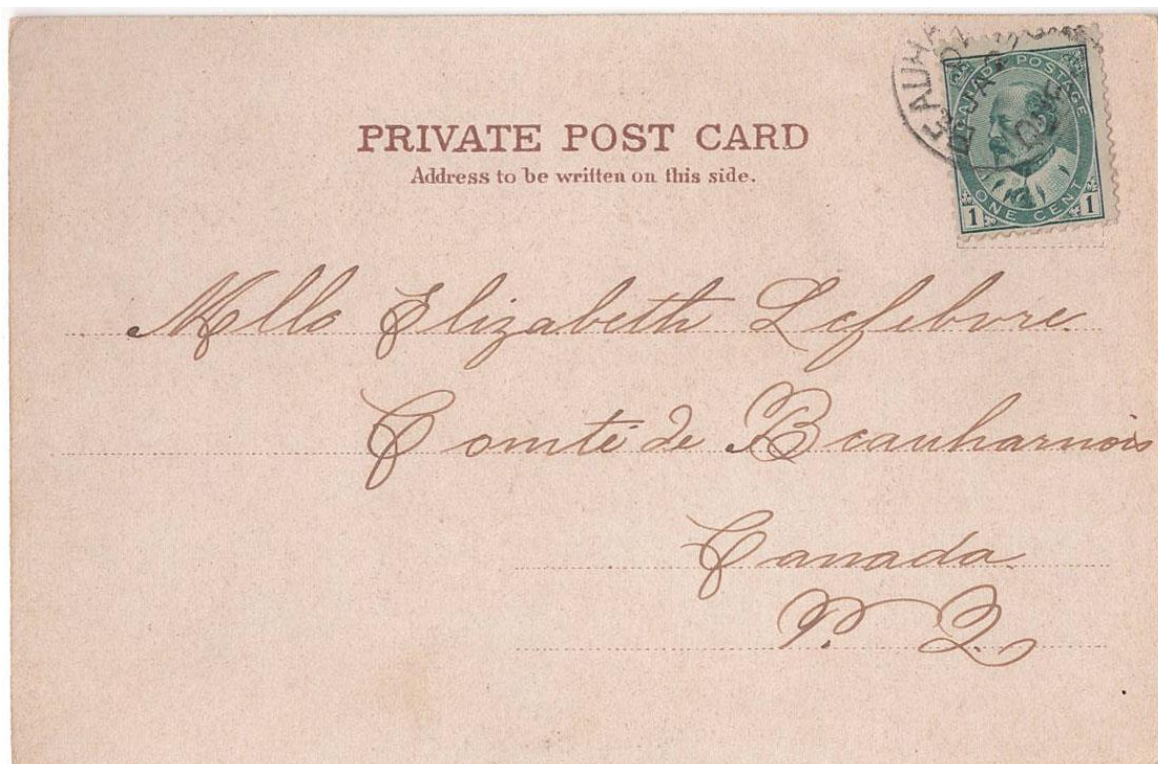 PRIVATE POST CARD
Address to be written on this side.
CANADA POSTAGE
ONE CENT
1 1
Mlle Elizabeth Lefebvre
Comté de Beauharnois
Canada
P. Q.